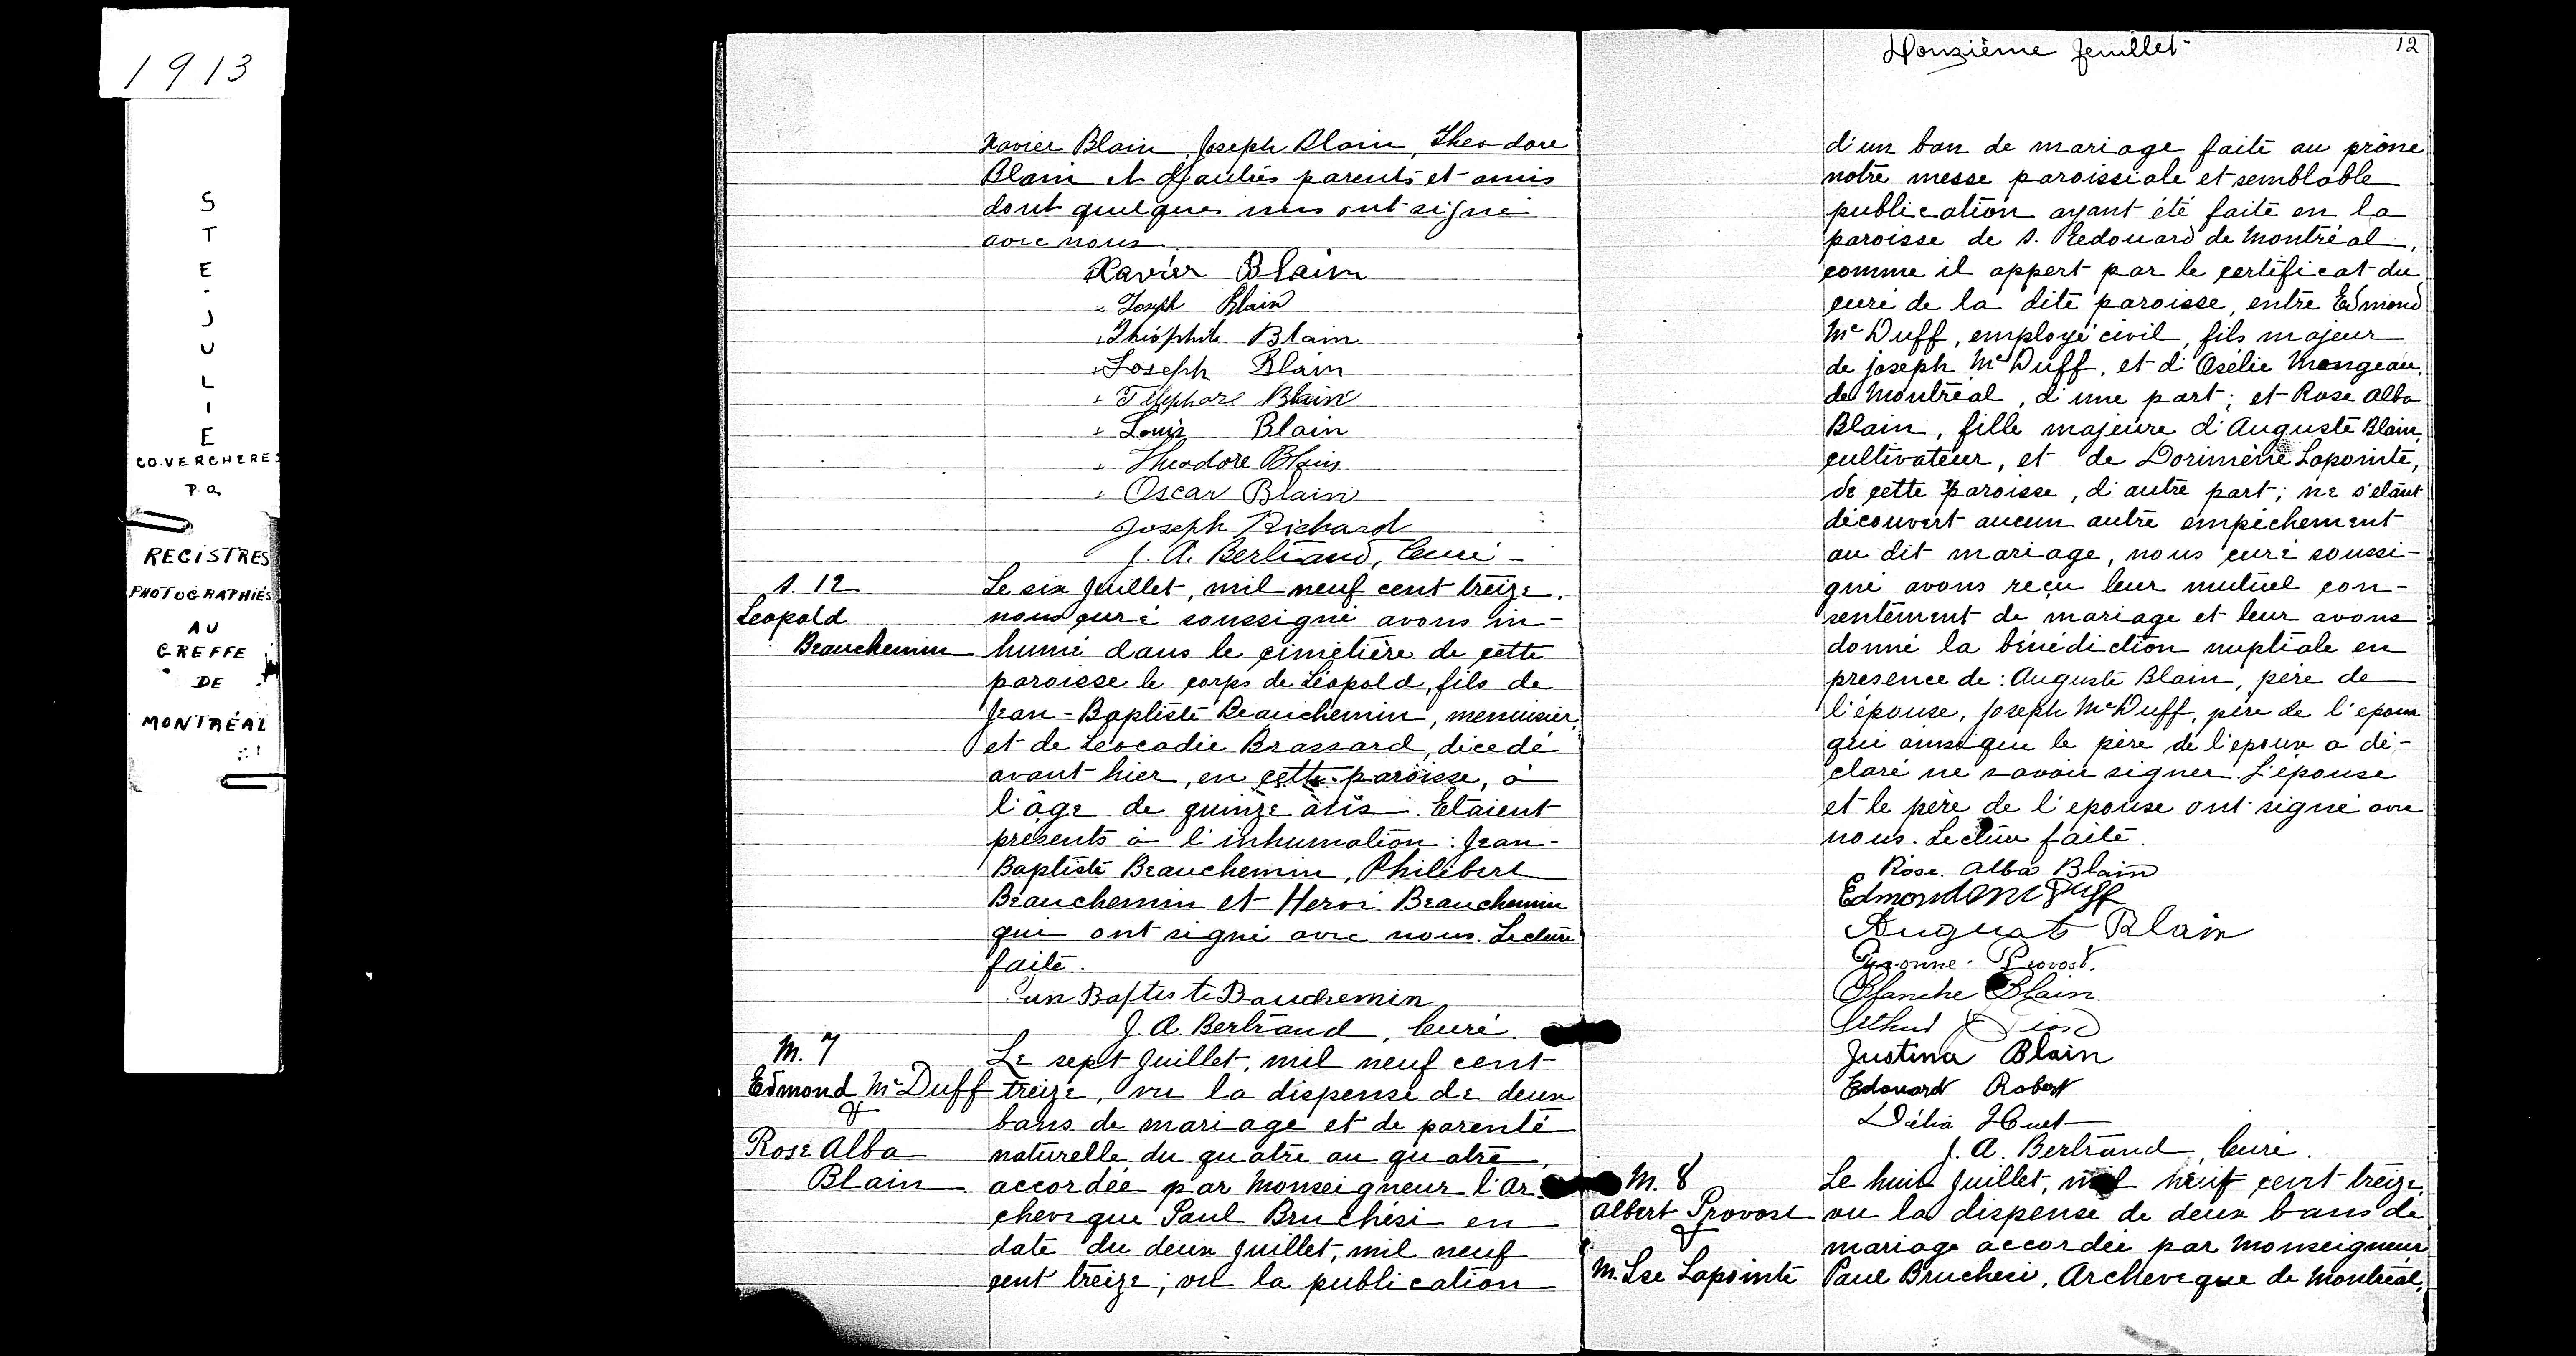 1913
STE-JULIE
CO. VERCHERES
P.Q.
REGISTRES
PHOTOGRAPHIÉS
AU
GREFFE
DE
MONTRÉAL
Xavier Blain, Joseph Blain, Theodore
Blain et d'autres parents et amis
dont quelques uns ont signé
avec nous
Xavier Blain
" Joseph Blain
" Théophile Blain
" Joseph Blain
" Télesphore Blain
" Louis Blain
" Theodore Blain
" Oscar Blain
Joseph Richard
J. A. Bertrand, Curé
S. 12
Leopold
Beauchemin
Le six Juillet, mil neuf cent treize,
nous curé soussigné avons in-
humé dans le cimetière de cette
paroisse le corps de Léopold, fils de
Jean-Baptiste Beauchemin, menuisier,
et de Leocadie Brassard, décédé
avant hier, en cette paroisse, à
l'âge de quinze ans. Etaient
présents à l'inhumation: Jean-
Baptiste Beauchemin, Philibert
Beauchemin et Hervé Beauchemin
qui ont signé avec nous. Lecture
faite.
Baptiste Bauchemin
J. A. Bertrand, Curé.
M. 7
Edmond McDuff
&
Rose Alba
Blain
Le sept Juillet, mil neuf cent
treize, vu la dispense de deux
bans de mariage et de parenté
naturelle du quatre au quatre,
accordée par Monseigneur l'Ar-
cheveque Paul Bruchési en
date du deux Juillet, mil neuf
cent treize; vu la publication
Douzième feuillet
12
d'un ban de mariage faite au prône
notre messe paroissiale et semblable
publication ayant été faite en la
paroisse de S. Edouard de Montréal,
comme il appert par le certificat du
curé de la dite paroisse, entre Edmond
McDuff, employé civil, fils majeur
de joseph McDuff, et d'Osélie Mongeau,
de Montréal, d'une part; et Rose Alba
Blain, fille majeure d'Auguste Blain,
cultivateur, et de Dorimène Lapointe,
de cette paroisse, d'autre part; ne s'étant
découvert aucun autre empêchement
au dit mariage, nous curé soussi-
gné avons reçu leur mutuel con-
sentement de mariage et leur avons
donné la bénédiction nuptiale en
présence de: Auguste Blain, père de
l'épouse, Joseph McDuff, père de l'epoux
qui ainsi que le père de l'epoux a dé-
claré ne savoir signer. L'épouse
et le père de l'epouse ont signé avec
nous. Lecture faite.
Rose. Alba Blain
Edmond McDuff
August Blain
Yvonne Provost.
Blanche Blain
Justina Blain
Edouard Robert
Délia Huet
J. A. Bertrand, Curé.
M. 8
Albert Provost
&
M. Lse Lapointe
Le huit Juillet, mil neuf cent treize,
vu la dispense de deux bans de
mariage accordée par Monseigneur
Paul Bruchési, Archeveque de Montréal,